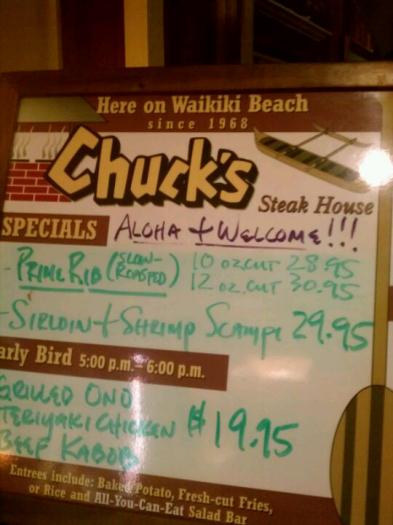 Here on Waikiki Beach
since 1968
Chuck's
Steak House
SPECIALS ALOHA + WELCOME!!!
- PRIME RIB (SLOW-ROASTED) 10 OZ.CUT 28.95
12 OZ.CUT 30.95
- SIRLOIN + SHRIMP SCAMPI 29.95
arly Bird 5:00 p.m. - 6:00 p.m.
GRILLED ONO
TERIYAKI CHICKEN $19.95
BEEF KABOB
Entrees include: Baked Potato, Fresh-cut Fries,
or Rice and All-You-Can-Eat Salad Bar